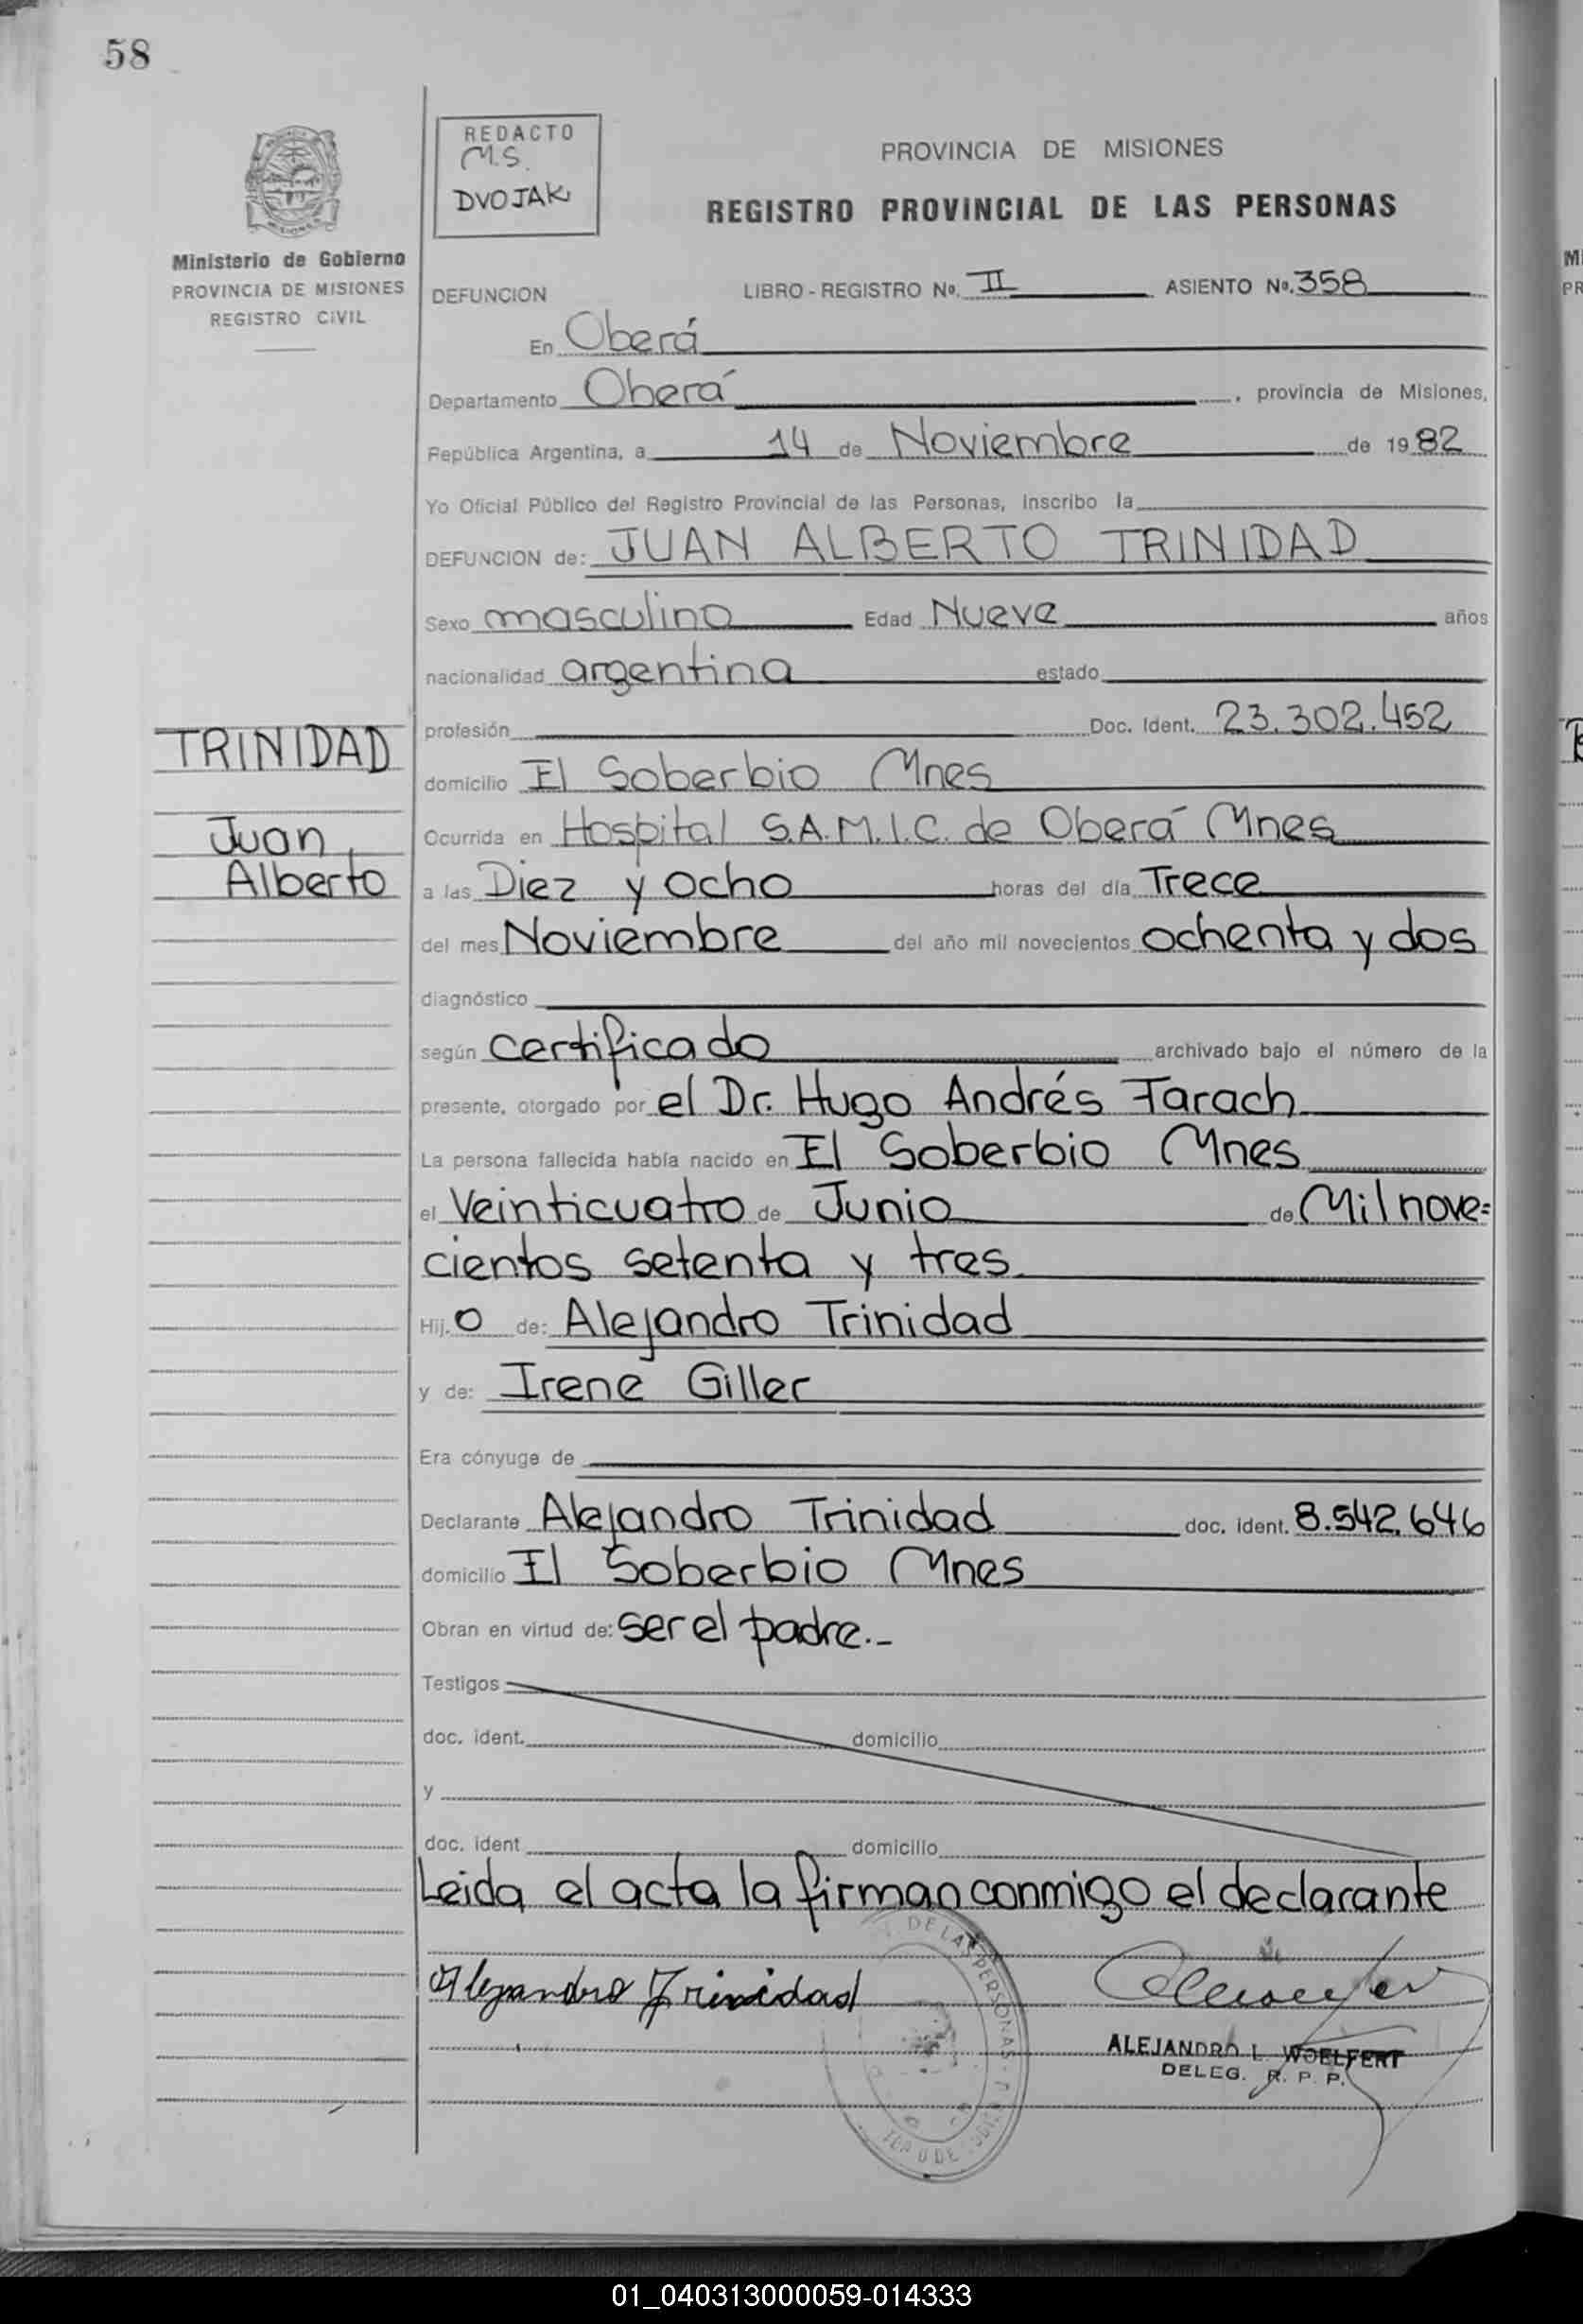 58
REDACTO
M.S.
DVOJAK
PROVINCIA DE MISIONES
REGISTRO PROVINCIAL DE LAS PERSONAS
Ministerio de Gobierno
PROVINCIA DE MISIONES
REGISTRO CIVIL
DEFUNCION LIBRO - REGISTRO Nº. II ASIENTO Nº. 358
En Oberá
Departamento Oberá, provincia de Misiones,
República Argentina, a 14 de Noviembre de 1982
Yo Oficial Público del Registro Provincial de las Personas, inscribo la
DEFUNCION de: JUAN ALBERTO TRINIDAD
Sexo masculino Edad Nueve años
nacionalidad argentina estado
TRINIDAD
Juan
Alberto
profesión Doc. Ident. 23.302.452
domicilio El Soberbio Mnes
Ocurrida en Hospital S.A.M.I.C. de Oberá Mnes
a las Diez y ocho horas del día Trece
del mes Noviembre del año mil novecientos ochenta y dos
diagnóstico
según certificado archivado bajo el número de la
presente, otorgado por el Dr. Hugo Andrés Tarach
La persona fallecida había nacido en El Soberbio Mnes
el Veinticuatro de Junio de Mil nove=
cientos setenta y tres
Hij.o de: Alejandro Trinidad
y de: Irene Giller
Era cónyuge de
Declarante Alejandro Trinidad doc. ident. 8.542.646
domicilio El Soberbio Mnes
Obran en virtud de: ser el padre.-
Testigos
doc. ident. domicilio
y
doc. ident domicilio
Leida el acta la firman conmigo el declarante
DE LAS PERSONAS
Alejandro Trinidad
ALEJANDRO L. WOELFERT
DELEG. R. P. P.
01_040313000059-014333